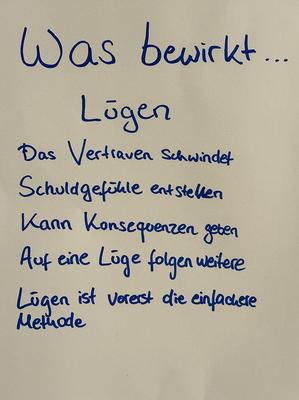 Was bewirkt...
Lügen
Das Vertrauen schwindet
Schuldgefühle entstehen
Kann Konsequenzen geben
Auf eine Lüge folgen weitere
Lügen ist vorerst die einfachere
Methode